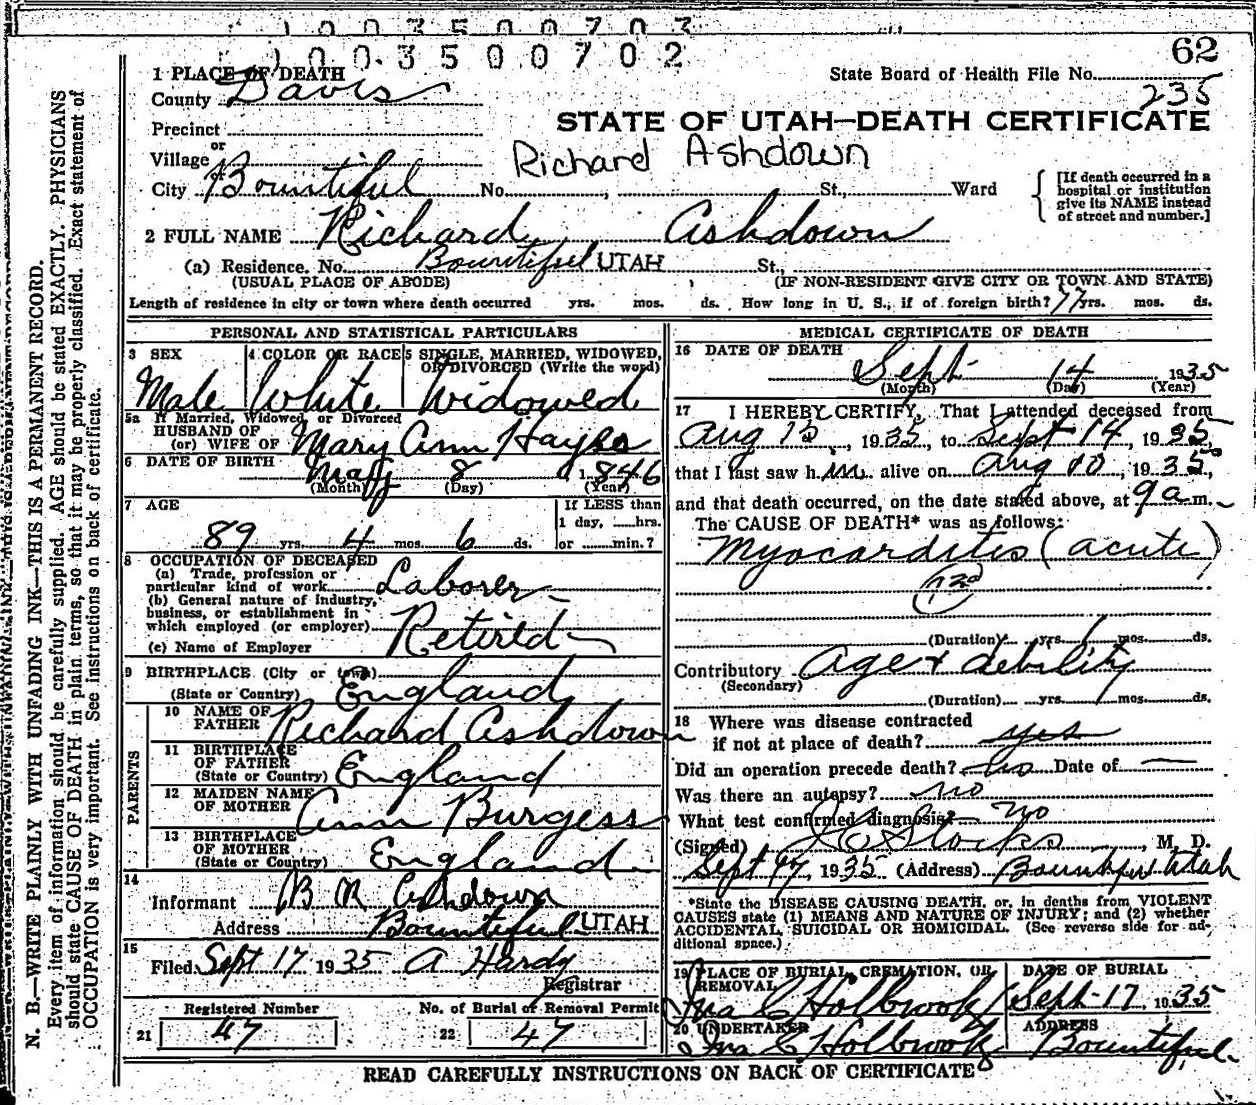 10035000703
10035000702
62
1 PLACE OF DEATH
State Board of Health File No.
235
County Davis
STATE OF UTAH—DEATH CERTIFICATE
Precinct
or
Village
Richard Ashdown
City Bountiful No. , St., Ward
[If death occurred in a
hospital or institution
give its NAME instead
of street and number.]
2 FULL NAME Richard Ashdown
(a) Residence. No. Bountiful UTAH St.,
(USUAL PLACE OF ABODE) (IF NON-RESIDENT GIVE CITY OR TOWN AND STATE)
Length of residence in city or town where death occurred yrs. mos. ds. How long in U. S., if of foreign birth? 77 yrs. mos. ds.
PERSONAL AND STATISTICAL PARTICULARS
3 SEX
Male
4 COLOR OR RACE
White
5 SINGLE, MARRIED, WIDOWED,
OR DIVORCED (Write the word)
Widowed
5a If Married, Widowed, or Divorced
HUSBAND OF
(or) WIFE OF Mary Ann Hayes
6 DATE OF BIRTH
May 8 1846
(Month) (Day) (Year)
7 AGE
89 yrs. 4 mos. 6 ds.
If LESS than
1 day, ......hrs.
or ......min.?
8 OCCUPATION OF DECEASED
(a) Trade, profession or
particular kind of work Laborer
(b) General nature of industry,
business, or establishment in
which employed (or employer)
Retired
(c) Name of Employer
9 BIRTHPLACE (City or town)
(State or Country) England
PARENTS
10 NAME OF
FATHER Richard Ashdown
11 BIRTHPLACE
OF FATHER
(State or Country) England
12 MAIDEN NAME
OF MOTHER Ann Burgess
13 BIRTHPLACE
OF MOTHER
(State or Country) England
14
Informant B R Ashdown
Address Bountiful UTAH
15
Filed Sept 17 1935 A Hardy
Registrar
Registered Number No. of Burial or Removal Permit
21 47 22 47
MEDICAL CERTIFICATE OF DEATH
16 DATE OF DEATH
Sept 14 1935
(Month) (Day) (Year)
17 I HEREBY CERTIFY, That I attended deceased from
Aug 15, 1935, to Sept 14, 1935,
that I last saw him alive on Aug 10, 1935,
and that death occurred, on the date stated above, at 9 a m.
The CAUSE OF DEATH* was as follows:
Myocarditis (acute)
(Duration) yrs. 1 mos. ds.
Contributory Age + debility
(Secondary)
(Duration) yrs. mos. ds.
18 Where was disease contracted
if not at place of death? yes
Did an operation precede death? No Date of —
Was there an autopsy? no
What test confirmed diagnosis? no
(Signed) Stocks, M. D.
Sept 17, 1935 (Address) Bountiful Utah
*State the DISEASE CAUSING DEATH, or, in deaths from VIOLENT
CAUSES state (1) MEANS AND NATURE OF INJURY; and (2) whether
ACCIDENTAL, SUICIDAL OR HOMICIDAL. (See reverse side for ad-
ditional space.)
19 PLACE OF BURIAL, CREMATION, OR
REMOVAL
Ina C Holbrook
DATE OF BURIAL
Sept 17 1935
20 UNDERTAKER
Ina C Holbrook
ADDRESS
Bountiful
READ CAREFULLY INSTRUCTIONS ON BACK OF CERTIFICATE
N. B.—WRITE PLAINLY WITH UNFADING INK—THIS IS A PERMANENT RECORD.
Every item of information should be carefully supplied. AGE should be stated EXACTLY. PHYSICIANS
should state CAUSE OF DEATH in plain terms, so that it may be properly classified. Exact statement of
OCCUPATION is very important. See instructions on back of certificate.